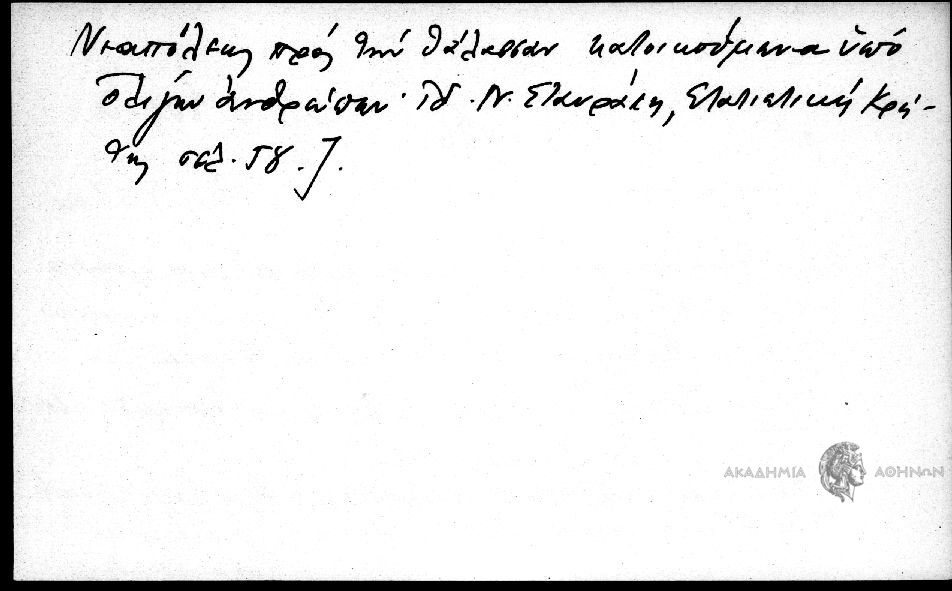 Νεαπόλεως πρὸς τὴν θάλασσαν κατοικούμενα ὑπὸ
ὀλίγων ἀνθρώπων· Ἰδ. Ν. Σταυράκη, Στατιστικὴ Κρή-
της σελ. 58.].
ΑΚΑΔΗΜΙΑ ΑΘΗΝΩΝ